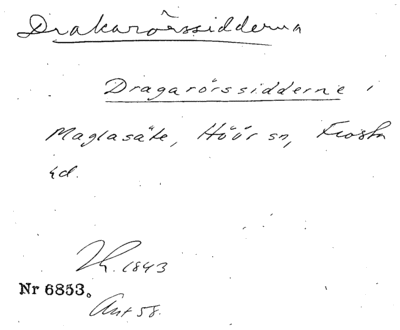 Drakarörssidderna
Dragarörssidderne i
Maglasäte, Höör sn, Frosta
hd.
1843
Nr 6853.
Ant 58.